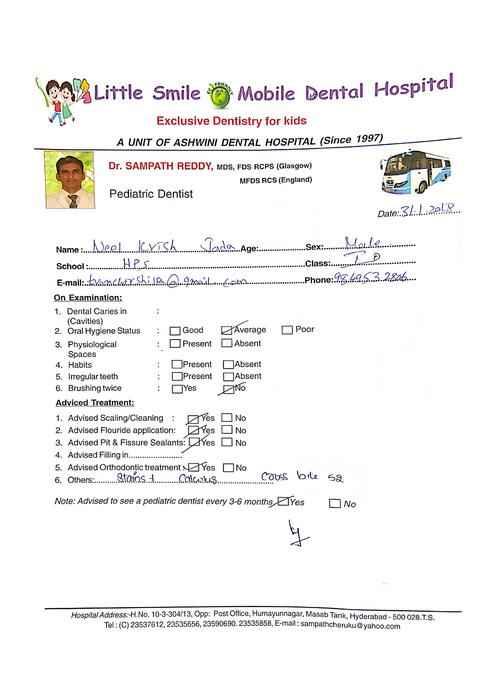 Little Smile Mobile Dental Hospital
Exclusive Dentistry for kids
A UNIT OF ASHWINI DENTAL HOSPITAL (Since 1997)
Dr. SAMPATH REDDY, MDS, FDS RCPS (Glasgow)
MFDS RCS (England)
Pediatric Dentist
Date: 31.1.2018
Name: Neel Krish Jada Age: Sex: Male
School: HPS Class: I D
E-mail: @gmail.com Phone:
On Examination:
1. Dental Caries in :
(Cavities)
2. Oral Hygiene Status : Good Average Poor
3. Physiological : Present Absent
Spaces
4. Habits : Present Absent
5. Irregular teeth : Present Absent
6. Brushing twice : Yes No
Adviced Treatment:
1. Advised Scaling/Cleaning : Yes No
2. Advised Flouride application: Yes No
3. Advised Pit & Fissure Sealants: Yes No
4. Advised Filling in
5. Advised Orthodontic treatment Yes No
6. Others: Stains + Calculus Cross bite 52
Note: Advised to see a pediatric dentist every 3-6 months Yes No
Hospital Address:-H.No. 10-3-304/13, Opp: Post Office, Humayunnagar, Masab Tank, Hyderabad - 500 028.T.S.
Tel : (C) 23537612, 23535656, 23590690. 23535858, E-mail : sampathcheruku@yahoo.com